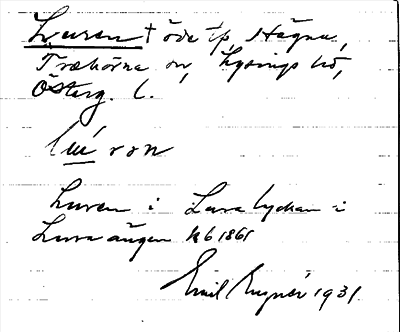 Luren † öde tp Hägna,
Trehörna sn, Lysings hd,
Österg. l.
luˊron
Luren i Lura lyckan i
Lura ängen kb 1861
Emil Rugner 1931.